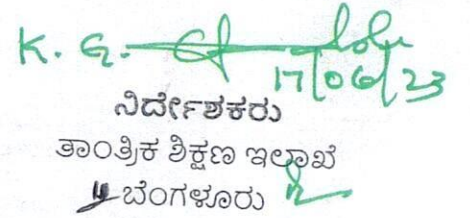 K. G.
17/06/23
ನಿರ್ದೇಶಕರು
ತಾಂತ್ರಿಕ ಶಿಕ್ಷಣ ಇಲಾಖೆ
ಬೆಂಗಳೂರು